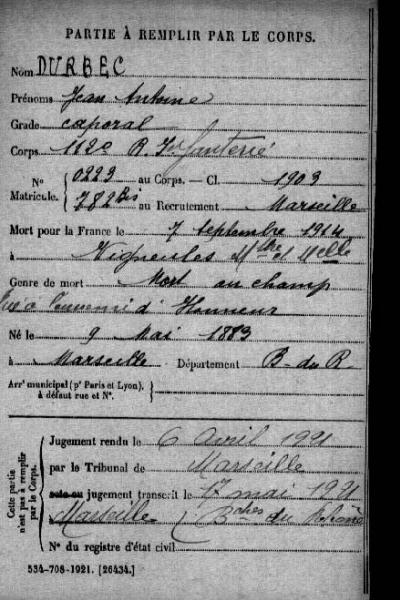 PARTIE À REMPLIR PAR LE CORPS.
Nom DURBEC
Prénoms Jean Antoine
Grade caporal
Corps 112e R. Infanterie
N° Matricule. { 0223 au Corps. — Cl. 1903
782 Bis au Recrutement Marseille
Mort pour la France le 7 septembre 1914
à Vigneules Mthe et Melle
Genre de mort Mort au champ
d'Honneur
Né le 9 Mai 1883
à Marseille Département B-du R.
Arr<sup>t</sup> municipal (p<sup>r</sup> Paris et Lyon), à défaut rue et N°. }
Cette partie n'est pas à remplir par le Corps.
Jugement rendu le 6 Avril 1921
par le Tribunal de Marseille
acte ou jugement transcrit le 17 mai 1921
Marseille (Bches du Rhône
N° du registre d'état civil
534-708-1921. [26434.]